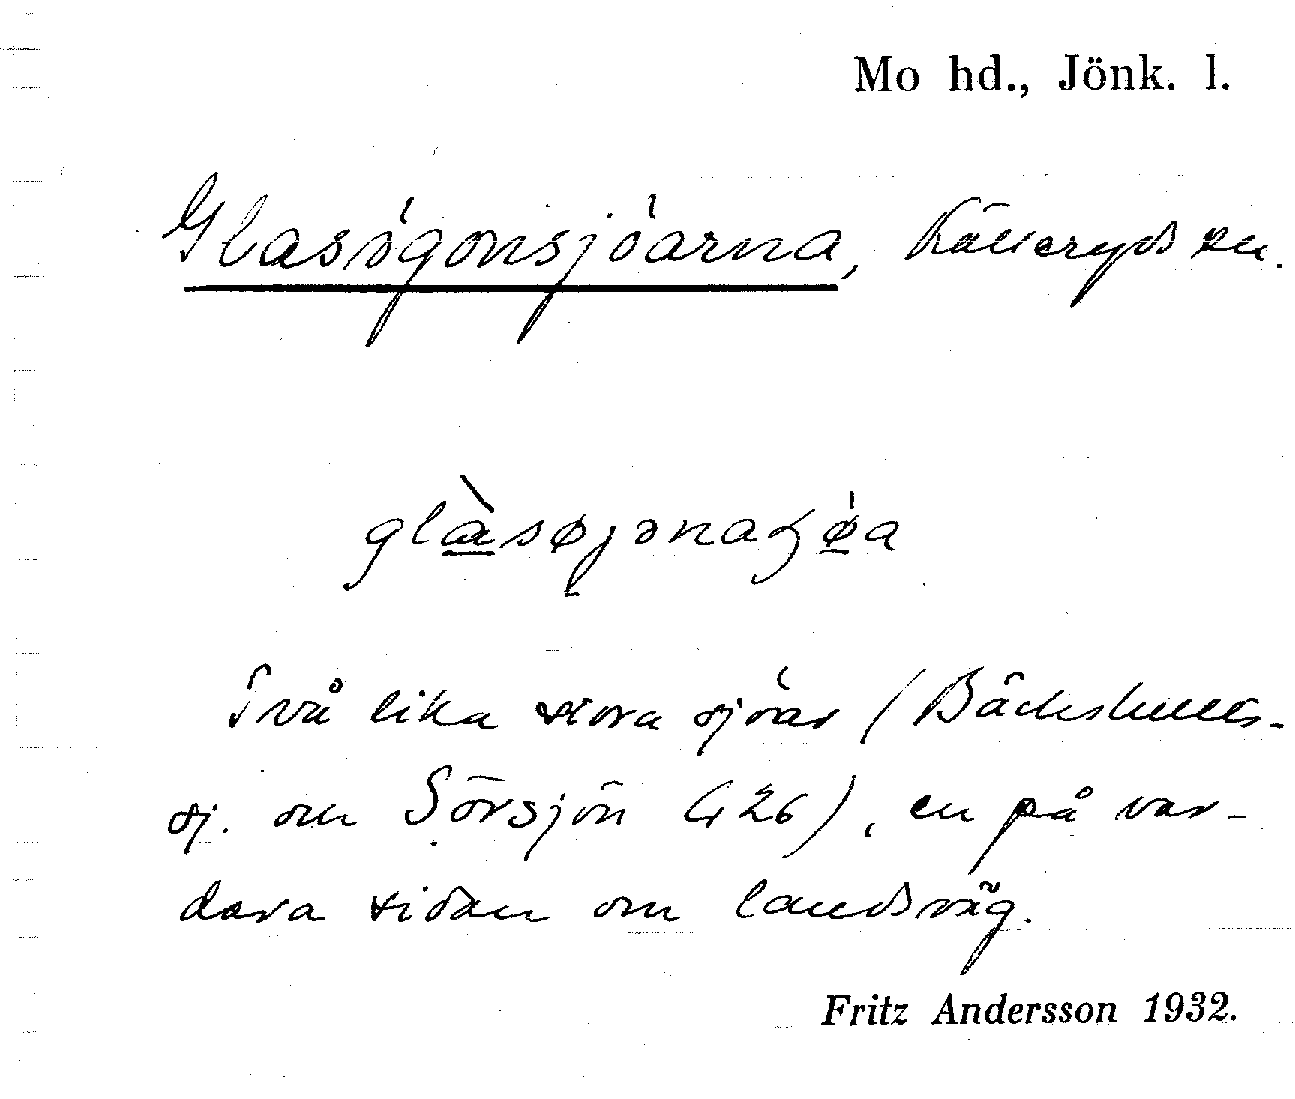 Mo hd., Jönk. l.
Glasögonsjöarna, Källeryds sn.
Två lika stora sjöar (Bäckshults-
sj. om Sörsjön 426), en på var-
dera sidan om landsväg.
Fritz Andersson 1932.